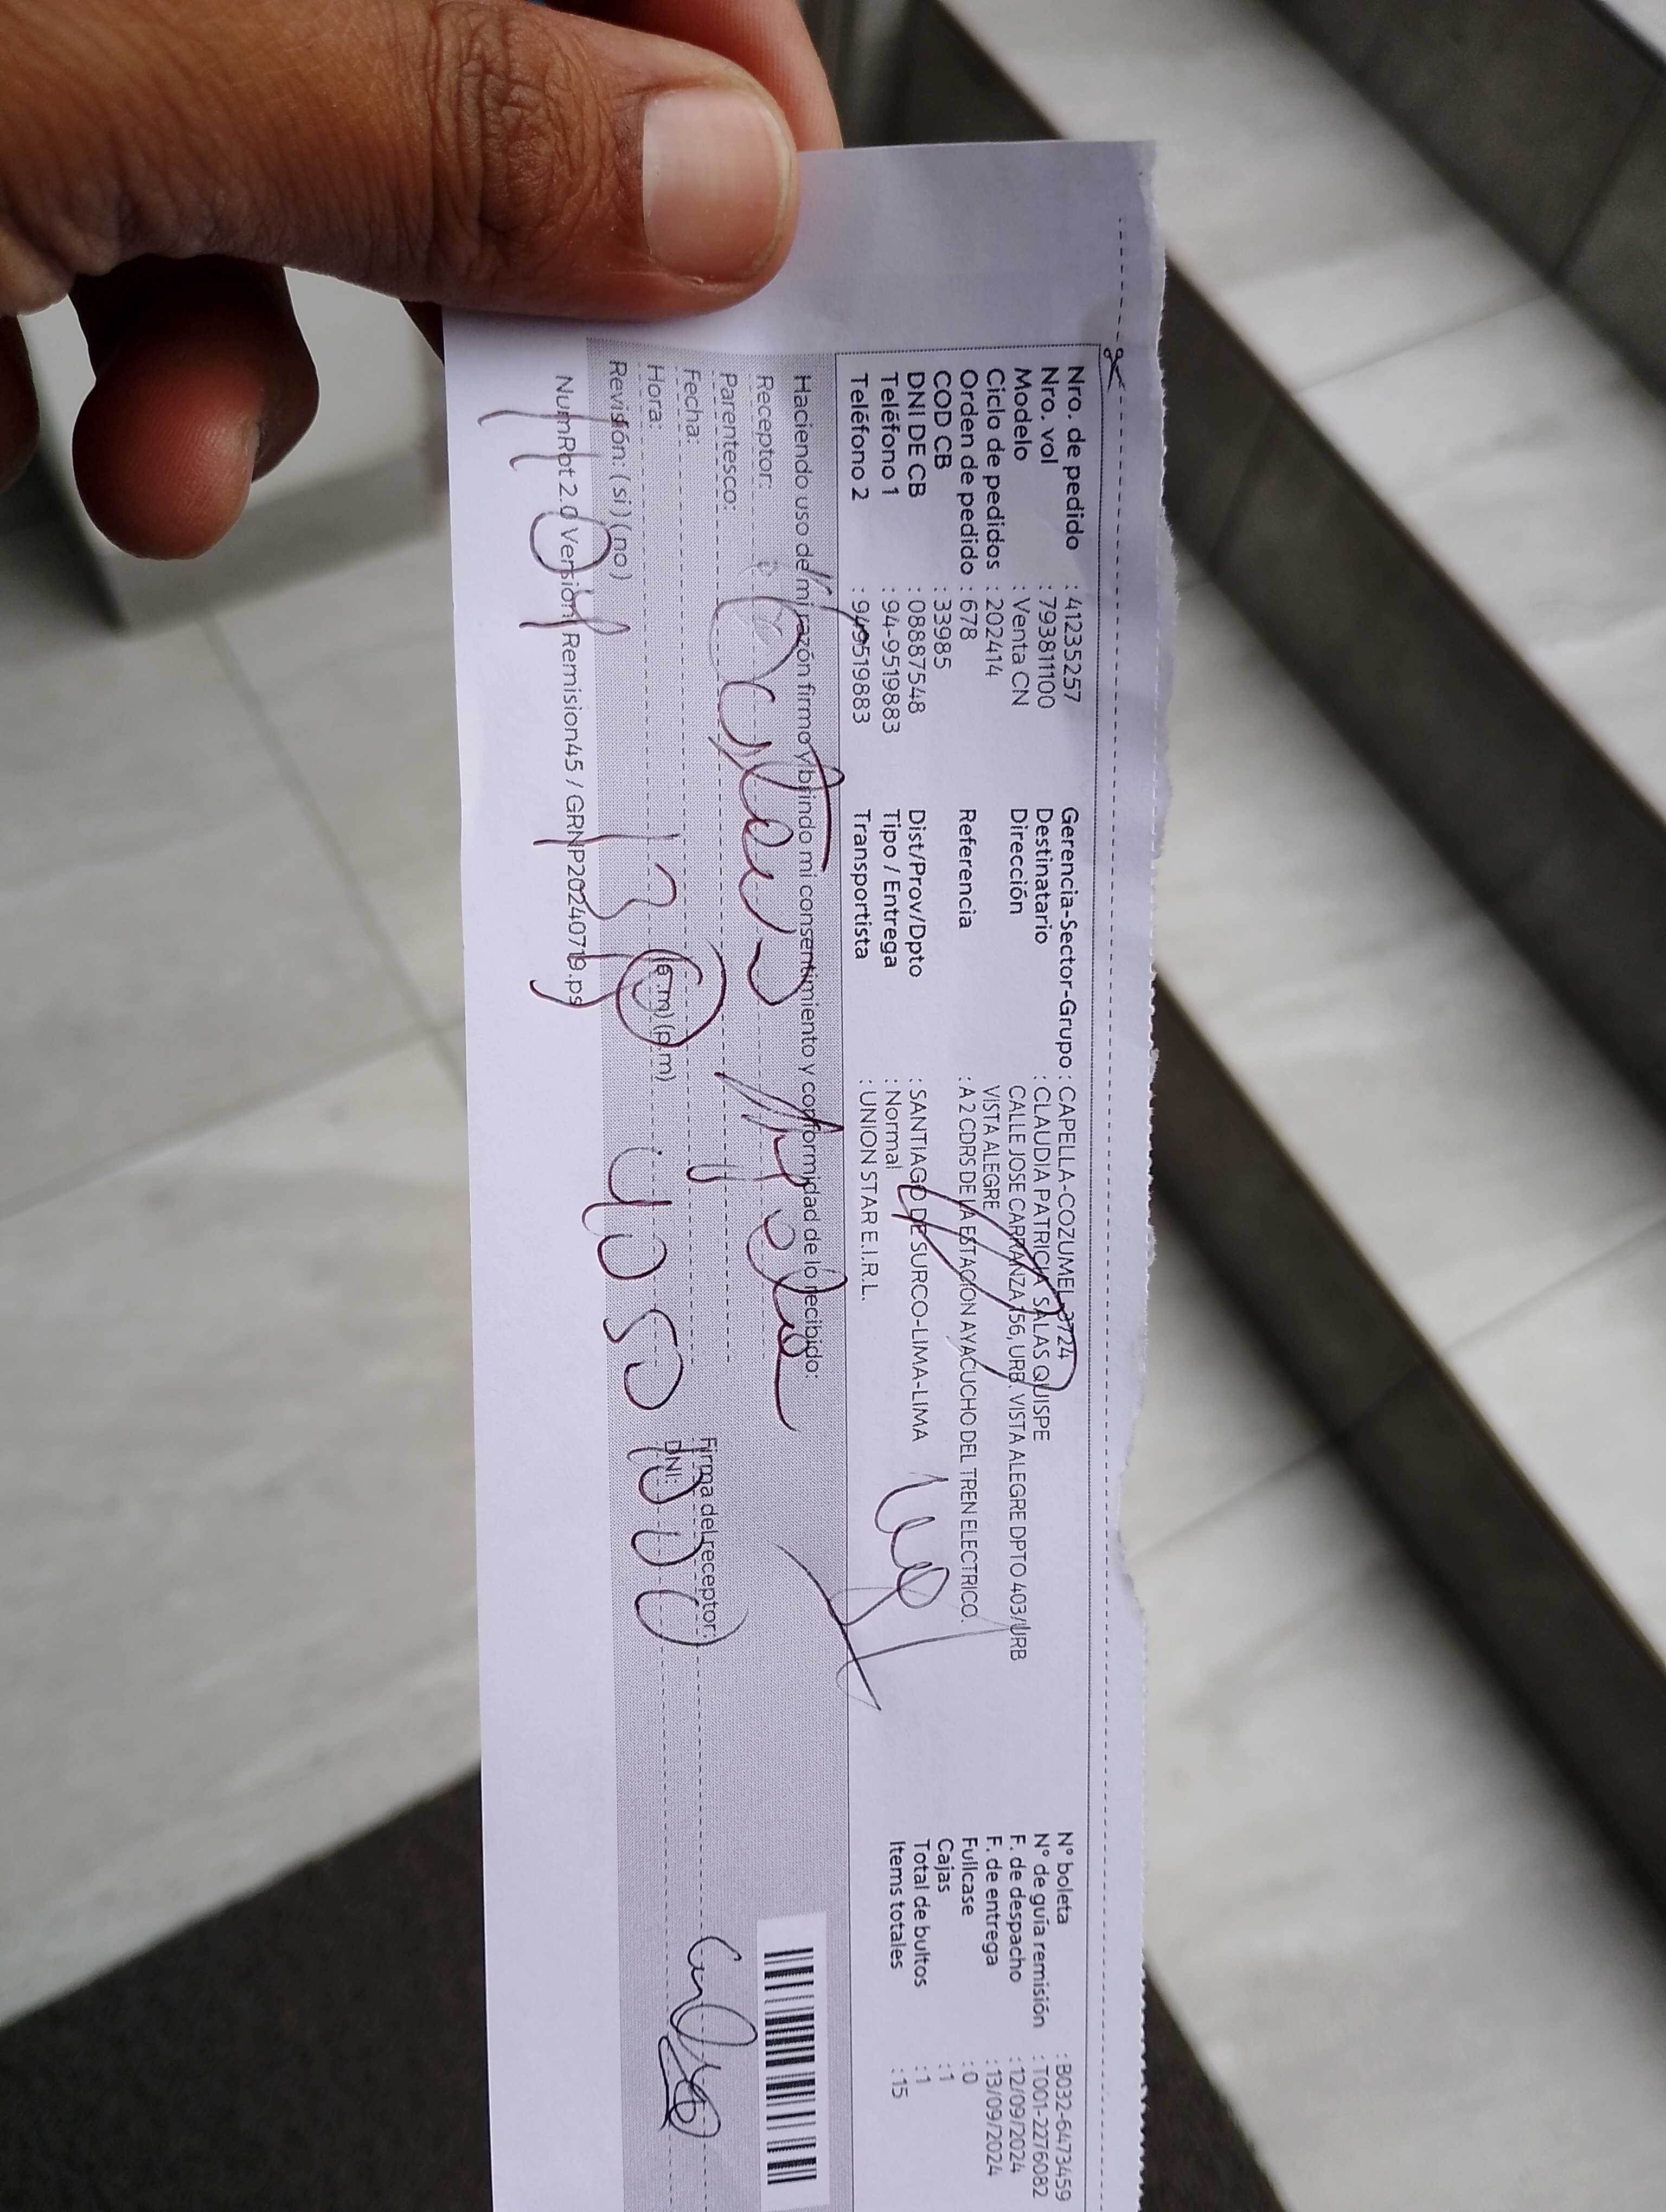 Nro. de pedido : 41235257
Nro. vol : 793811100
Modelo : Venta CN
Ciclo de pedidos : 202414
Orden de pedido : 678
COD CB : 33985
DNI DE CB : 08887548
Teléfono 1 : 94-9519883
Teléfono 2 : 949519883
Gerencia-Sector-Grupo : CAPELLA-COZUMEL-3724
Destinatario : CLAUDIA PATRICIA SALAS QUISPE
Dirección CALLE JOSE CARRANZA 156, URB. VISTA ALEGRE DPTO 403/URB
VISTA ALEGRE
Referencia : A 2 CDRS DE LA ESTACION AYACUCHO DEL TREN ELECTRICO.
Dist/Prov/Dpto : SANTIAGO DE SURCO-LIMA-LIMA
Tipo / Entrega : Normal
Transportista : UNION STAR E.I.R.L.
N° boleta : B032-6473459
N° de guía remisión : T001-2276082
F. de despacho : 12/09/2024
F. de entrega : 13/09/2024
Fullcase : 0
Cajas : 1
Total de bultos : 1
Items totales : 15
Haciendo uso de mi razón firmo y brindo mi consentimiento y conformidad de lo recibido:
Receptor:
Parentesco:
Fecha:
Hora: (a.m) (p.m)
Revisión: (si) (no)
Firma del receptor:
DNI:
NumRpt 2.0 Version Remision45 / GRNP20240719.ps